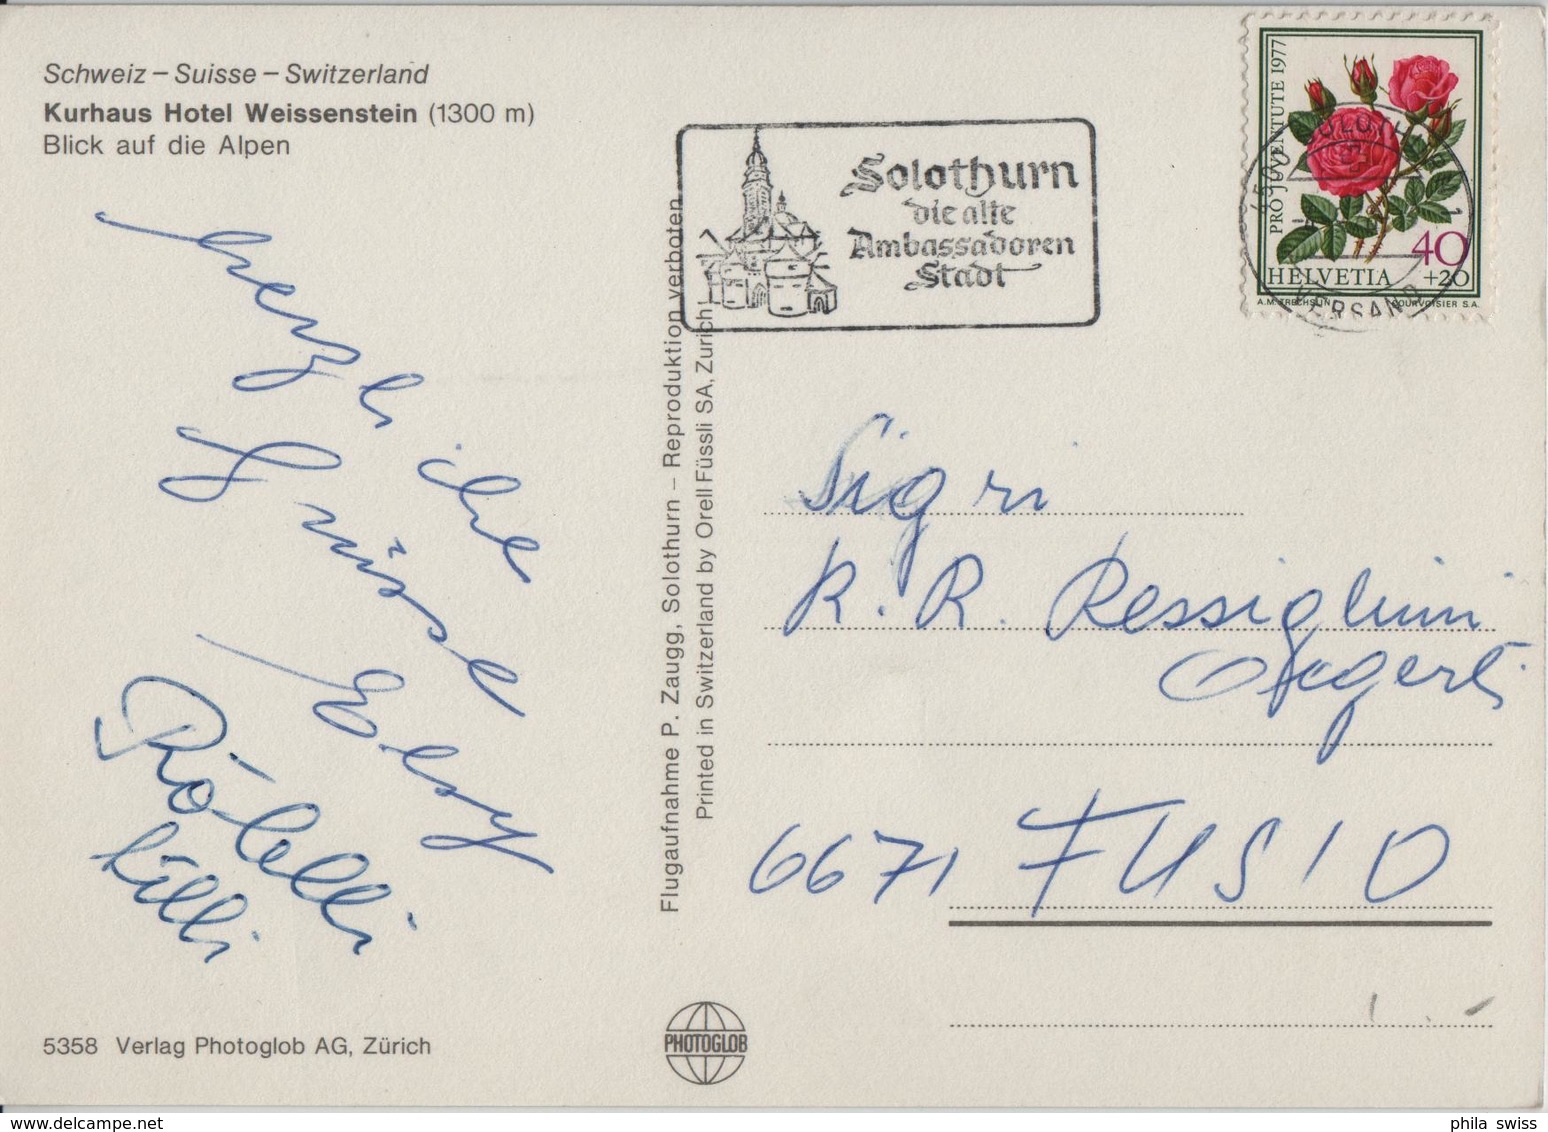 Schweiz – Suisse – Switzerland
Kurhaus Hotel Weissenstein (1300 m)
Blick auf die Alpen
herzliche
Grüsse
Elsy
Röbelli
Lilli
5358 Verlag Photoglob AG, Zürich
Flugaufnahme P. Zaugg, Solothurn – Reproduktion verboten
Printed in Switzerland by Orell Füssli SA, Zurich
PHOTOGLOB
Solothurn
die alte
Ambassadoren
Stadt
PRO JUVENTUTE 1977
40
+20
HELVETIA
A.M. TRECHSLIN COURVOISIER S.A.
VERSAND
Sigri
R. R. Ressiglini
6671 FUSIO
phila swiss